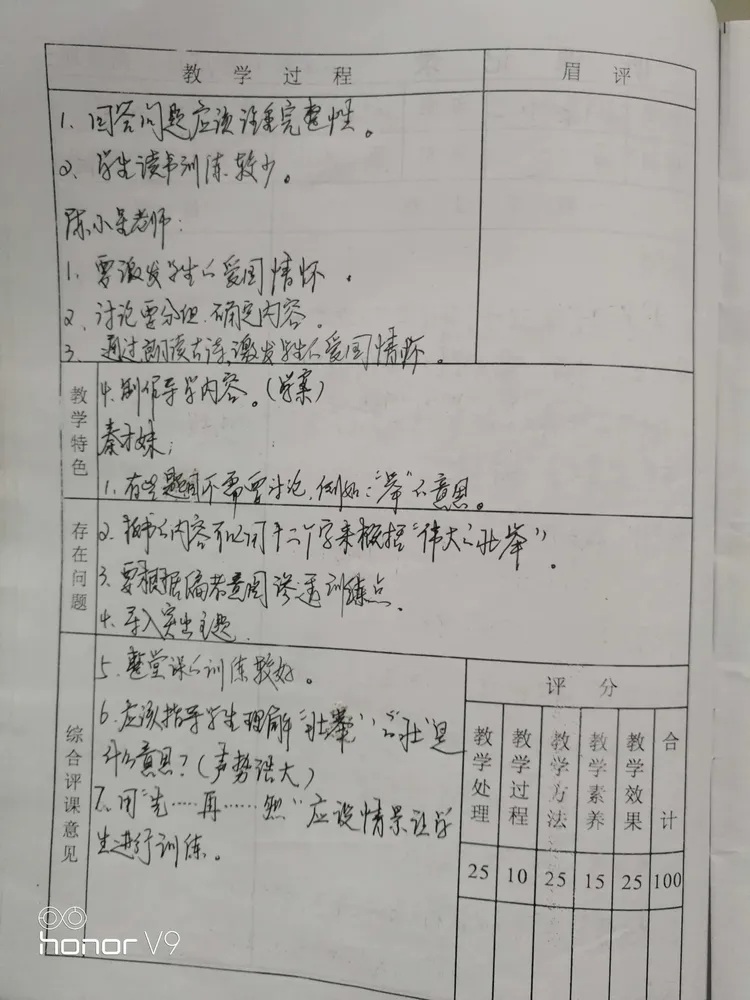 教学过程
眉评
1、回答问题应该注重完整性。
2、学生读书训练较少。
陈小星老师:
1、要激发学生的爱国情怀.
2、讨论要分组.确定内容。
3、通过朗读古诗,激发学生的爱国情怀。
教学特色
4.制作导学内容。(学案)
秦才妹:
1.有些题目不需要讨论.例如:“举”的意思。
存在问题
2.的内容可以用十二个字来概括“伟大的壮举”.
3.要根据编者意图渗透训练点.
4.导入突出主题.
综合评课意见
5.整堂课的训练较好。
6.应该指导学生理解“壮举”的“壮”是
什么意思?(声势强大)
7.用“先……再……然”应设情景让学
生进行训练。
评分
教学处理 教学过程 教学方法 教学素养 教学效果 合计
25 10 25 15 25 100
honor V9